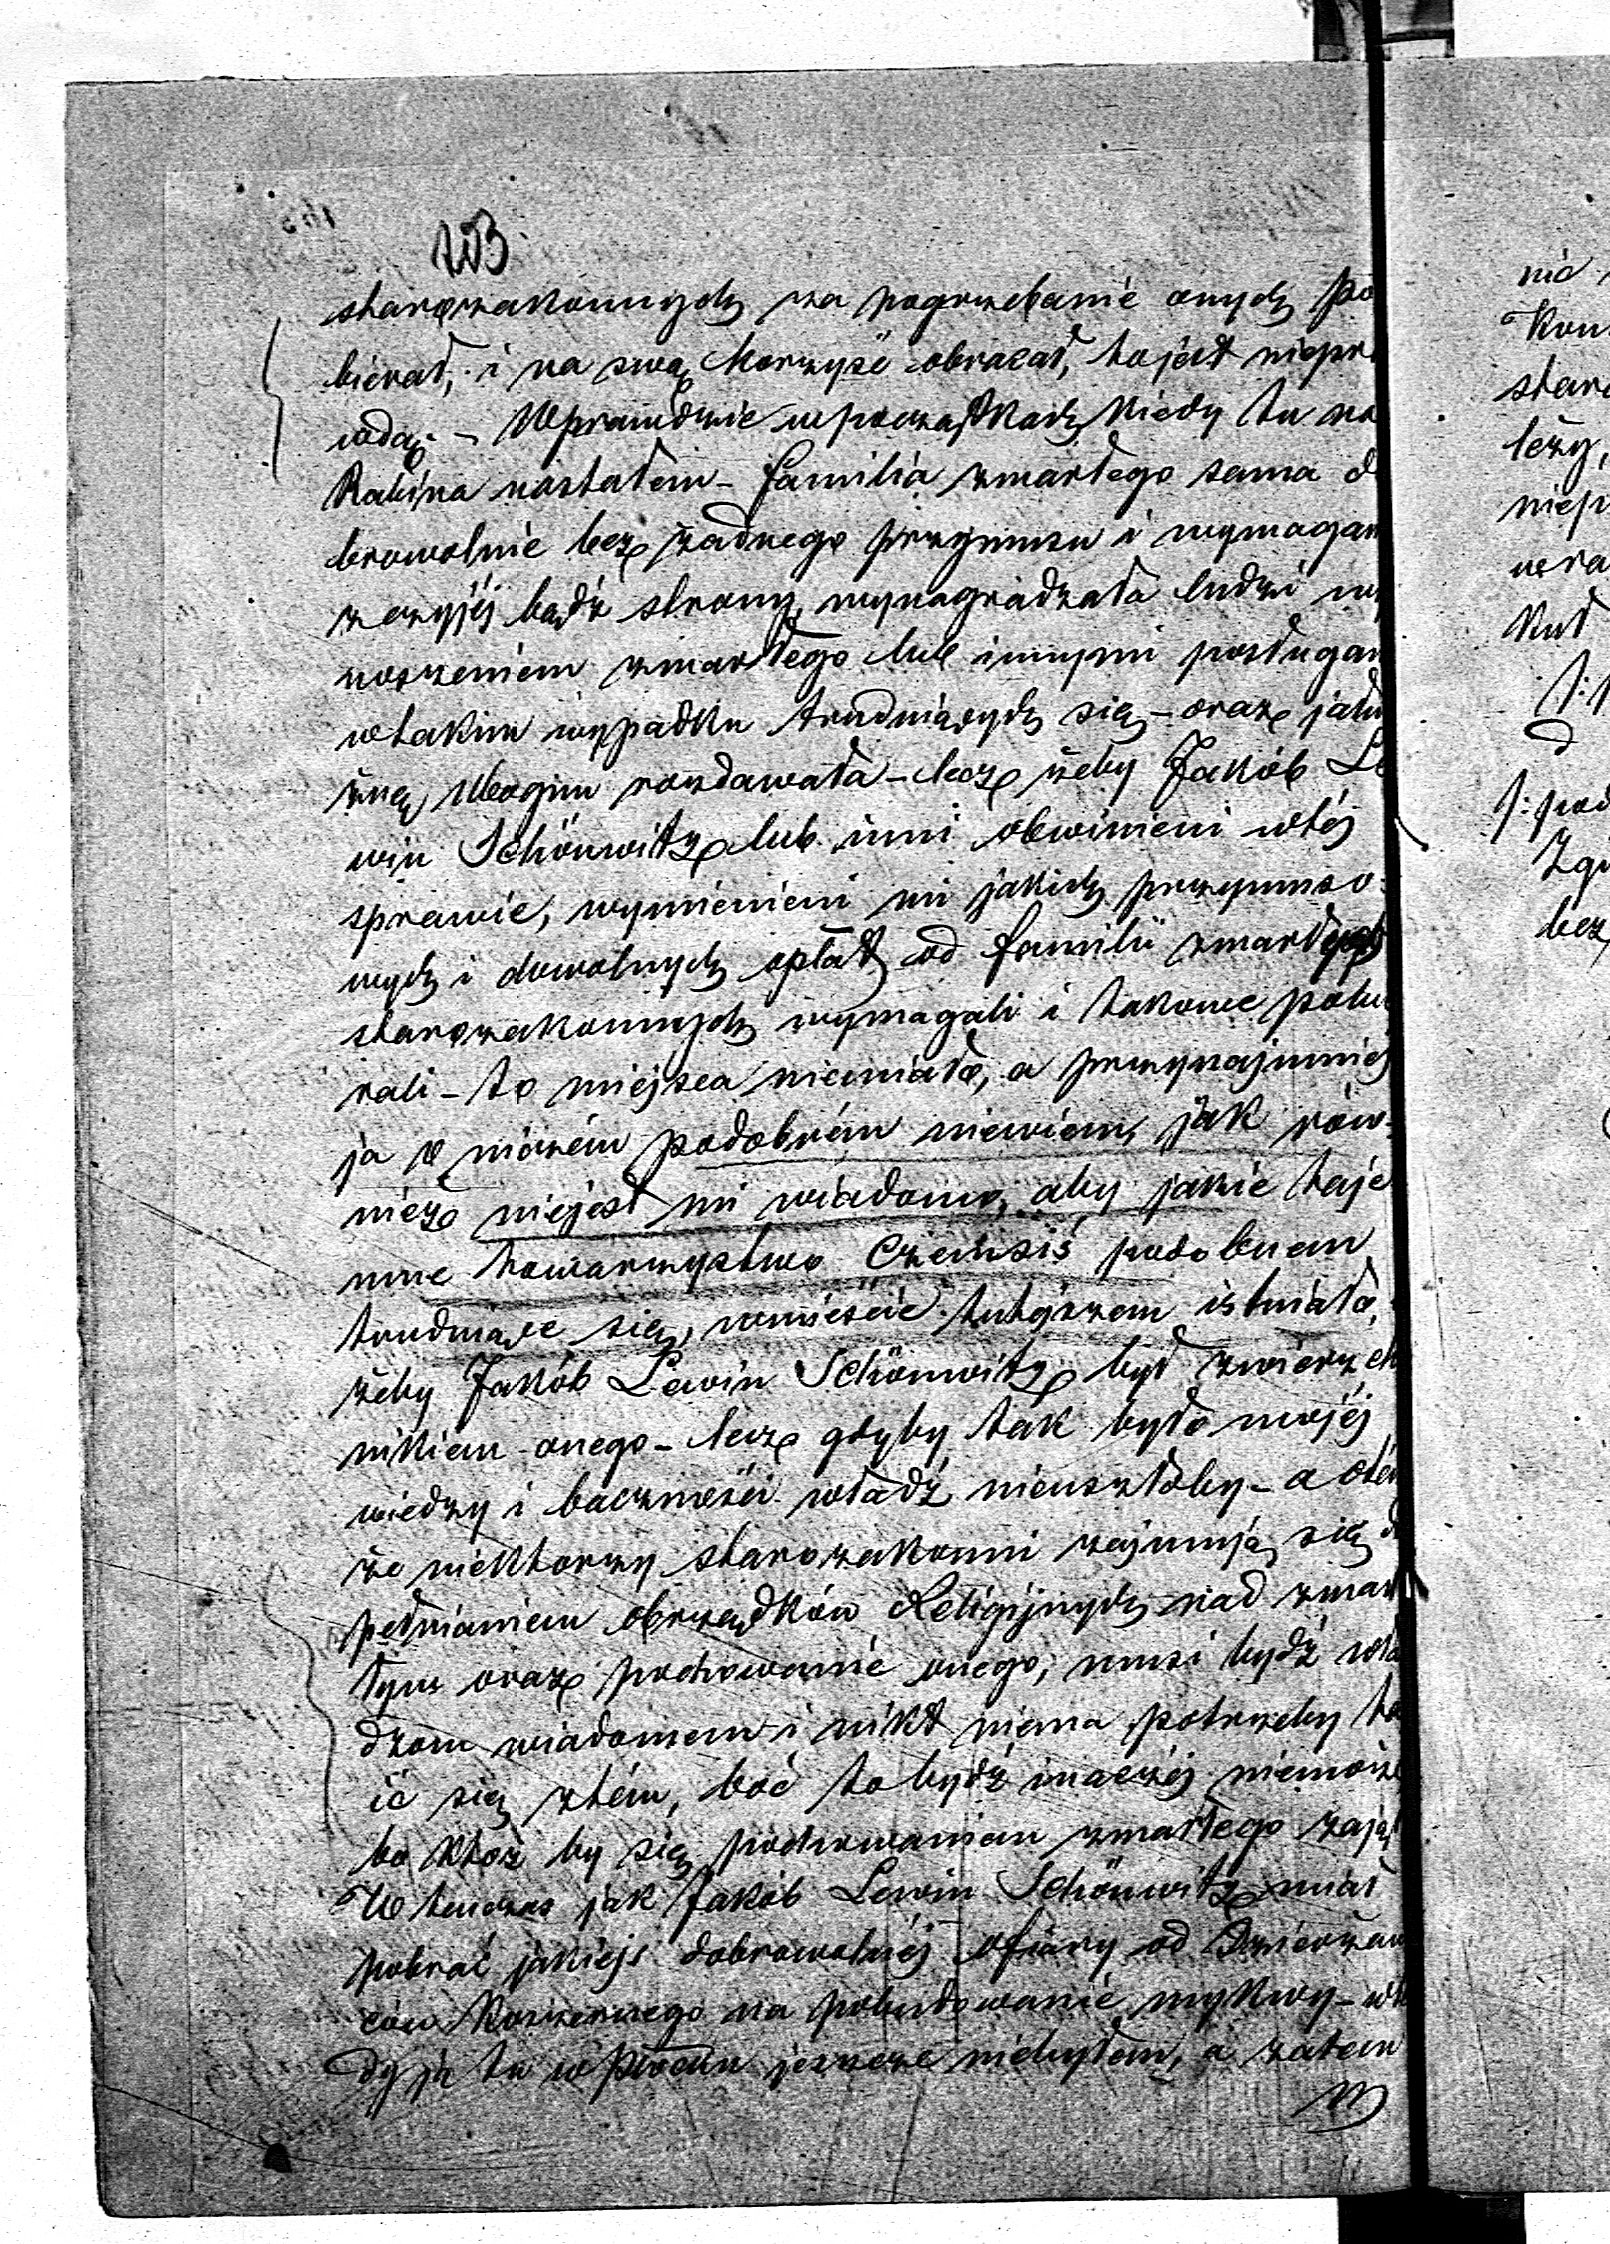 203
starozakonnych za pogrzebanie onych po
bierał, i na swą korzyść obracał, to jest niepr
wdą. – Wprawdzie w początkach kiedy tu za
Rabina zostałem – familia zmarłego sama do
browolnie bez żadnego przymusu i wymagan
z czyjéj bądź strony, wynagradzała ludzi wy
noszeniem zmarłego lub innymi posługam
w takim wypadku trudniących się – oraz jałm
żnę ubogim rozdawała – lecz żeby Jakób Le
win Schönwitz lub inni obwinieni w téj
sprawie, wymienieni mi jakich przymuso-
wych i dowolnych opłat od familii zmarłych
starozakonnych wymagali i takowe pobie
rali – to miéjsca niemiało, a przynajmniéj
ja o niczém podobném niewiem, jak rów-
nież niejest mi wiadomo, aby jakie taje
mne towarzystwo czemsiś podobnem
trudniące się, w mieście tutéjszem istniało,
żeby Jakób Lewin Schönwitz był zwierzch
nikiem onego – lecz gdyby tak było mojéj
wiedzy i baczności władz nieuszłoby – a o tém
że niektorzy starozakonni zajmują się d
pełnianiem obrządków Religijnych nad zmar
łym oraz pochowanie onego, musi bydź wła
dzom wiadomem i nikt niema potrzeby ta
ić się z tém, boć to bydź inaczéj niemoże
bo ktoż by się pochowaniem zmarłego zajął
W tenczas jak Jakób Lewin Schönwitz miał
pobrać jakiejś dobrowolnéj ofiary od Dzierżaw
ców Koszernego na pobudowanie mykwy – wte
dy ja tu w Płocku jeszcze niebyłem, a zatem
nic
Kon
staro
leży,
niep
wra
kuł
bez